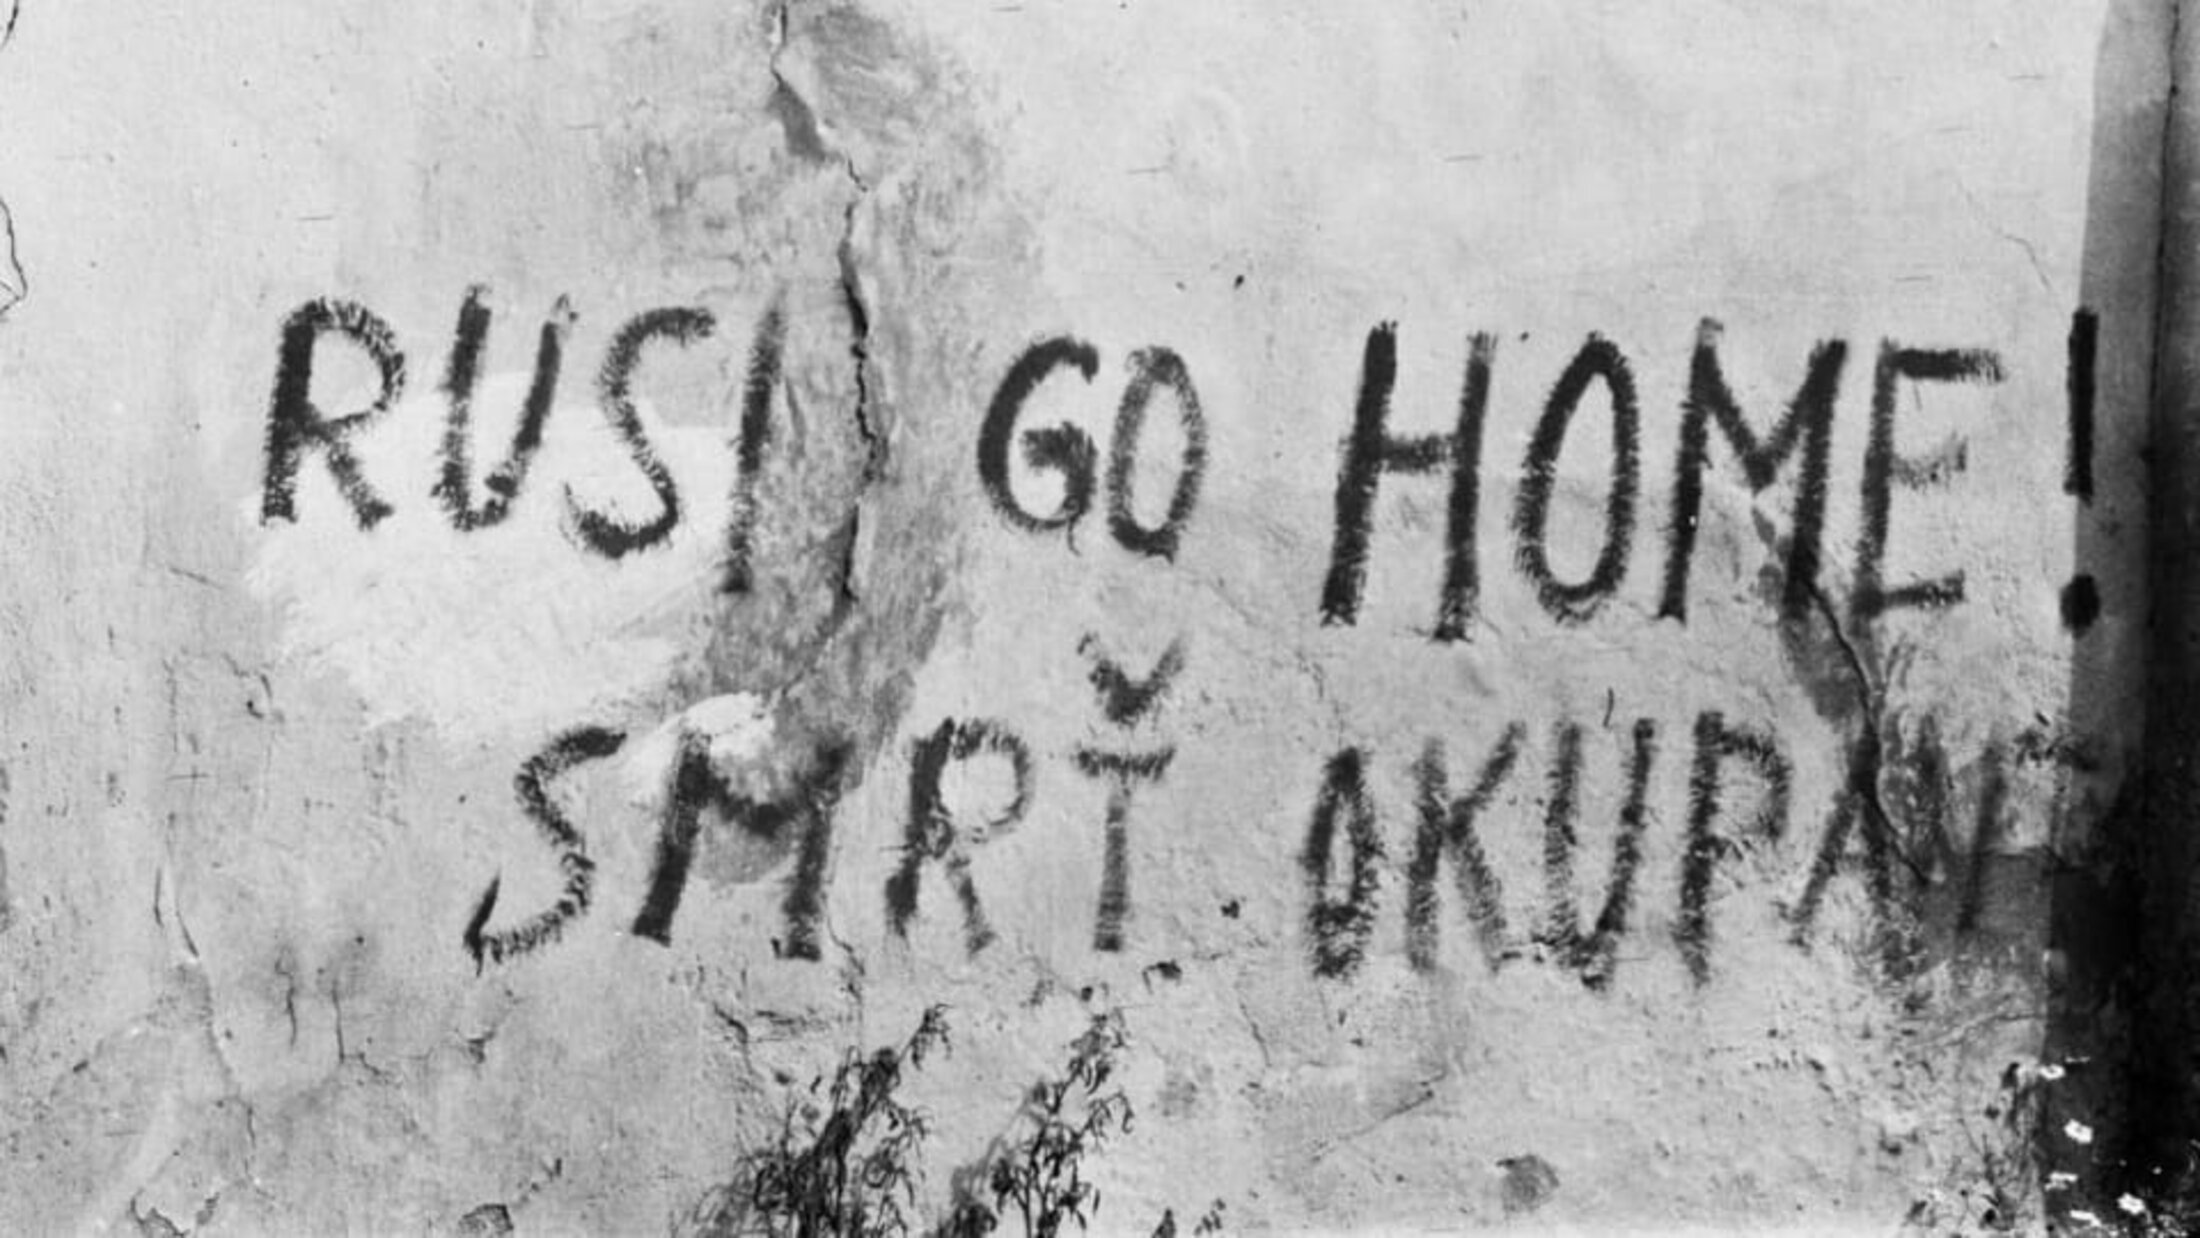 RUSI GO HOME!
SMRŤ OKUPAN